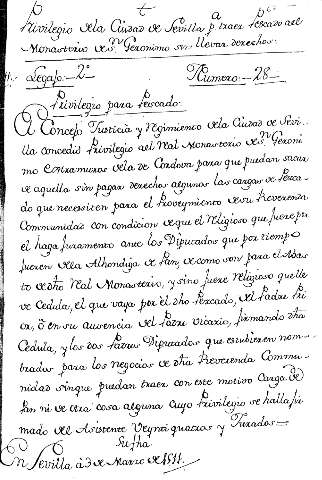 Privilegio de la Ciudad de Sevilla pa. traer Pescado al
Monasterio de Sn. Geronimo sin llevar derechos.
Legajo 2º Numero 28
Privilegio para Pescado
El Concejo Justicia y Regimiento de la Ciudad de Sevi-
lla concedió Privilegio al Real Monasterio de Sn. Geroni-
mo extramuros de la de Cordova para que puedan sacar
de aquella sin pagar derechos algunos las cargas de Pesca-
do que necesiten para el Proveymiento de su Reverenda
Communidad con condicion de que el Religioso que fuere por
el haga juramento ante los Diputados que por tiempo
fueren de la Alhondiga de Pan, de como son para el Abas-
to de dho Real Monasterio, y sino fuere Religioso que lle-
ve Cedula, el que vaya por el dho Pescado, del Padre Pri-
or, ó en su ausencia del Padre Vicario, firmando dha
Cedula, y los dos Padres Diputados que estubieren nom-
brados para los negocios de dha Reverenda Commu-
nidad sin que puedan traer con este motivo Carga de
Pan ni de otra cosa alguna cuyo Privilegio se halla fir-
mado del Asistente Veynte quatros y Jurados
Su fha
En Sevilla á 3 de Marzo de 1511.